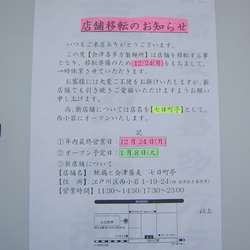 店舗移転のお知らせ
いつもご来店ありがとうございます。
この度【会津喜多方製麺所】は店舗を移転する事と
なり、移転準備のため12/24(月)をもちまして、
一時休業させていただきます。
お客様には大変ご不便をお掛けいたしますが、新
店舗でも引き続きご愛顧いただけますようお願い
申し上げます。
尚、新店舗については店名を七日町亭として、
西小岩にオープンします。
記
①年内最終営業日 12月24日(月)
②オープン予定日：1月8日(火)
③新店舗について
【店舗名】 総鶏と会津蕎麦 七日町亭
【住 所】 江戸川区西小岩1-19-24
【営業時間】 11:30～14:30/17:30～23:00
以上